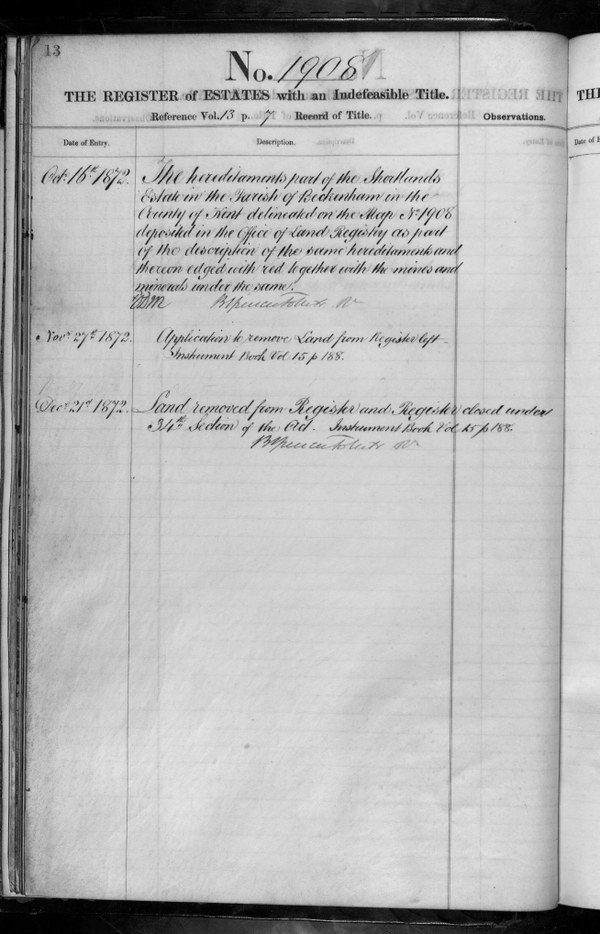 13
No. 1908
THE REGISTER of ESTATES with an Indefeasible Title.
Reference Vol. 13 p. 7 Record of Title.
Observations.
Date of Entry.
Description.
Octr. 16th 1872.
The hereditaments part of the Shortlands
Estate in the Parish of Beckenham in the
County of Kent delineated on the Map No. 1908
deposited in the Office of Land Registry as part
of the description of the same hereditaments and
thereon edged with red together with the mines and
minerals under the same.
Novr. 27th 1872.
Application to remove Land from Register left
Instrument Book Vol 15 p 188.
Decr. 21st 1872.
Land removed from Register and Register closed under
34th Section of the Act. Instrument Book Vol 15 p 188.
THE
Date of E